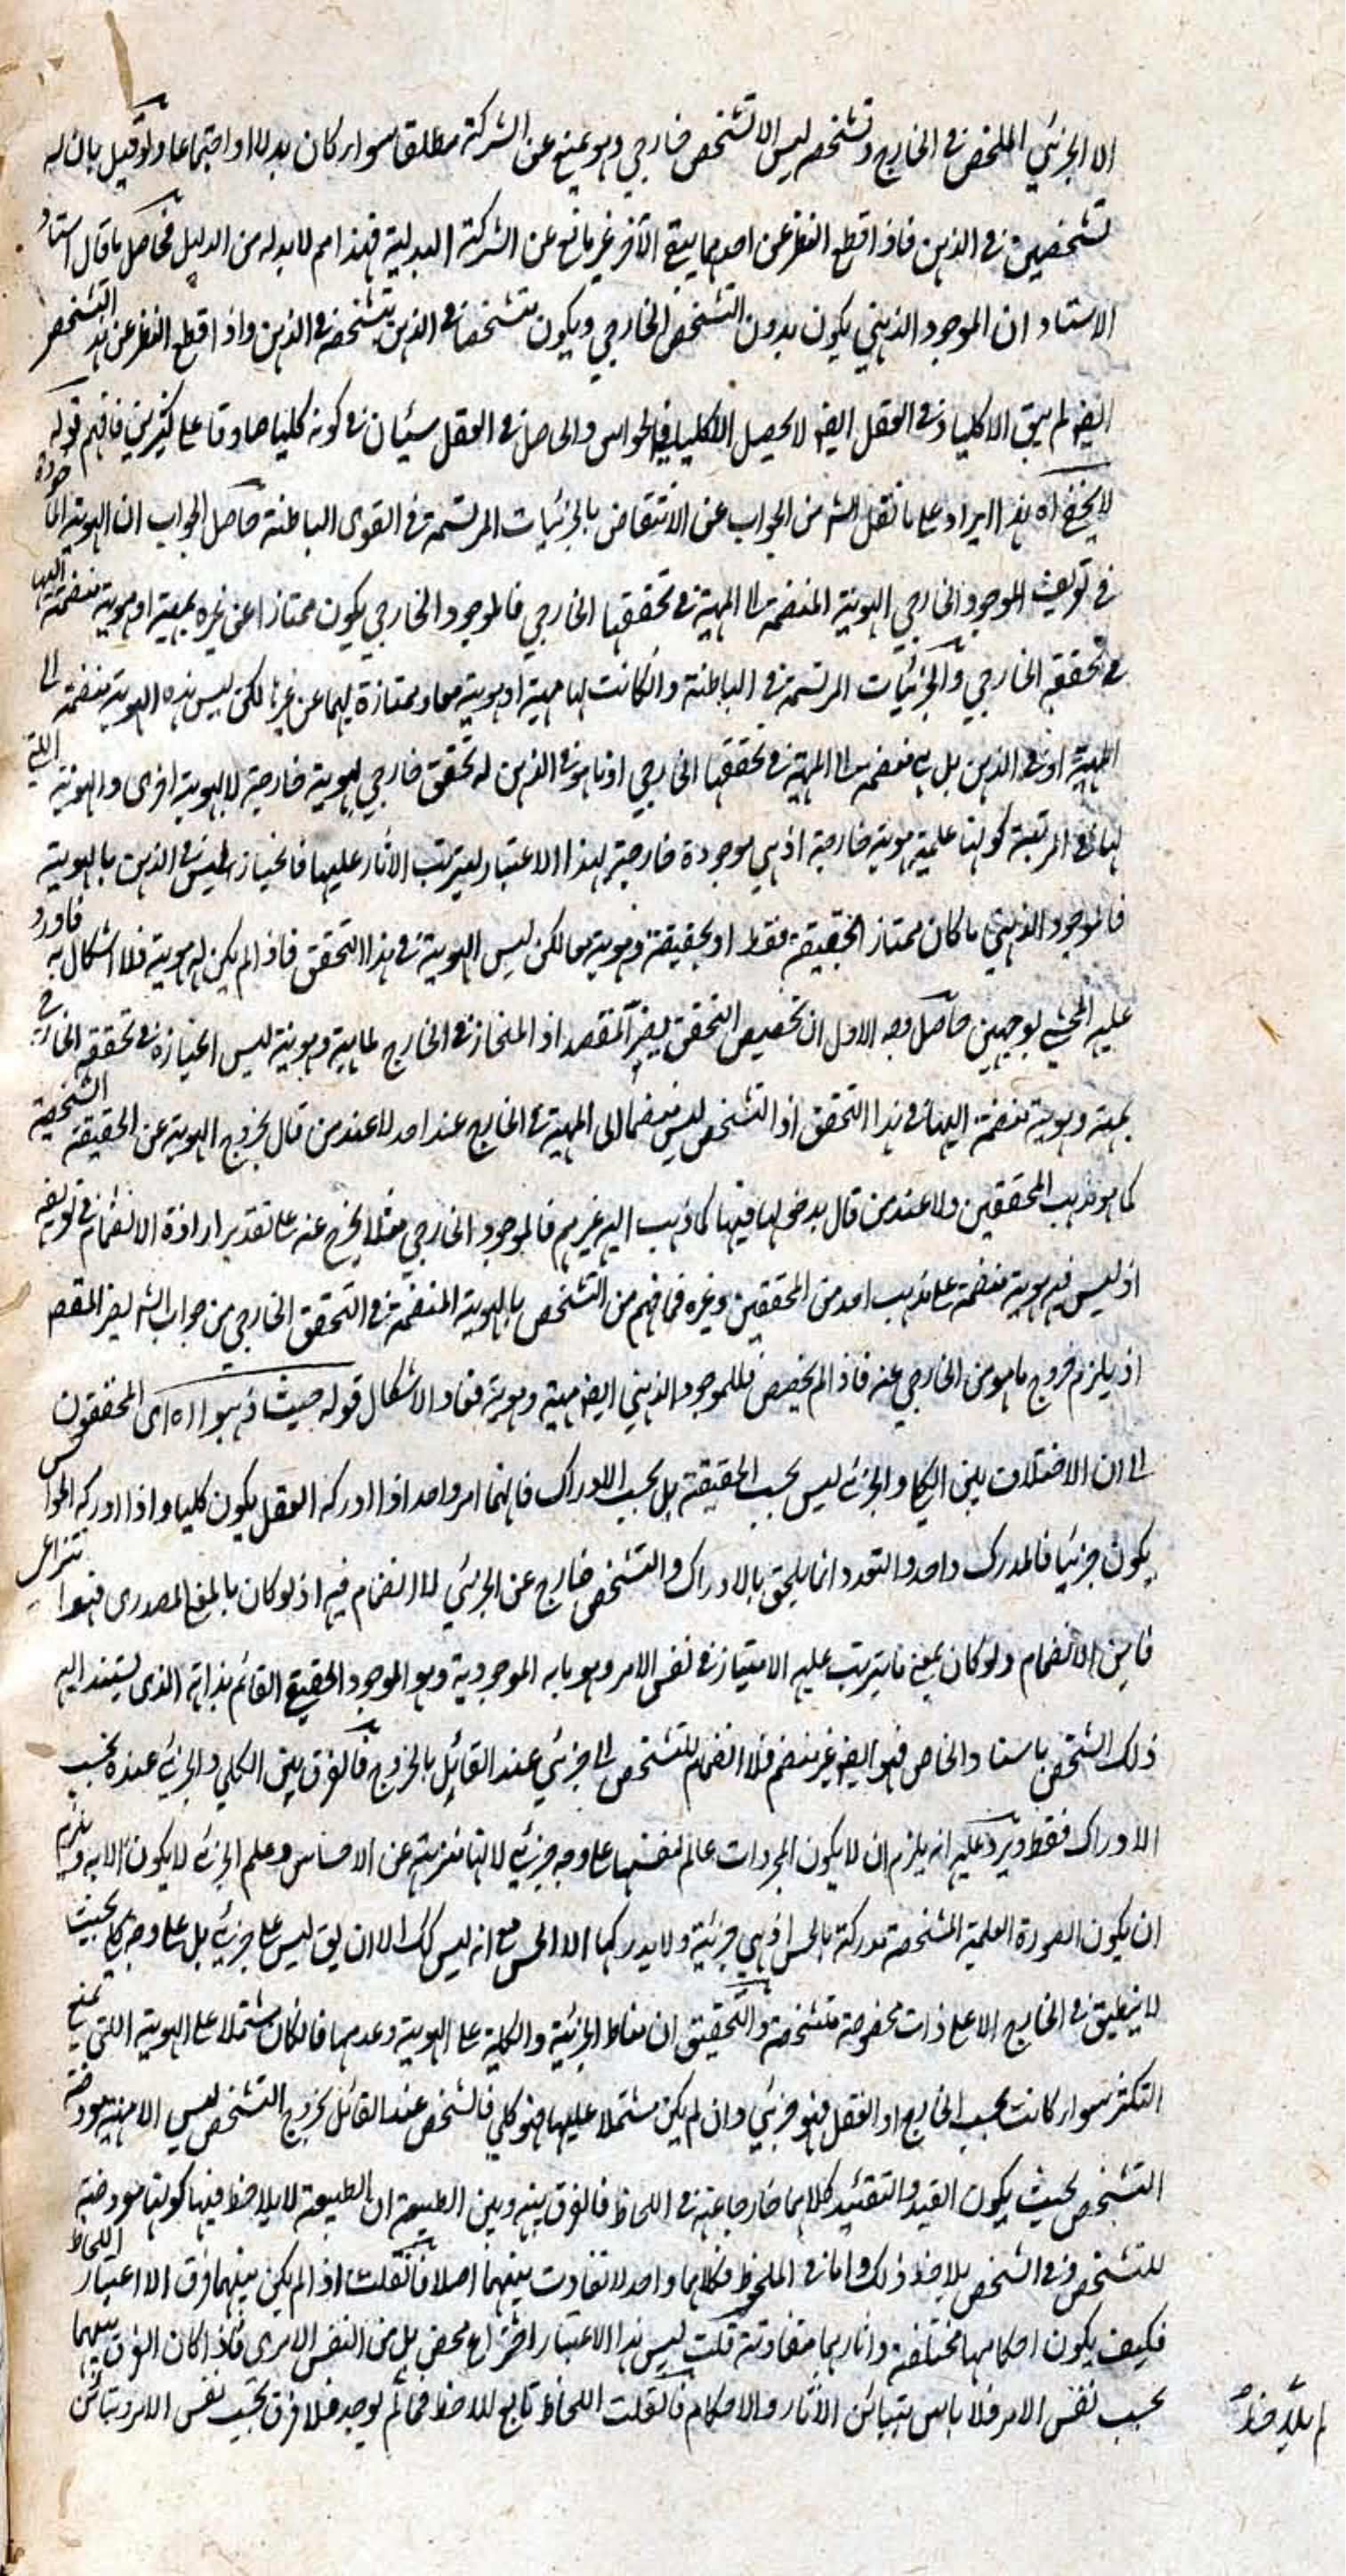 الا الجزئي الملخص في الخارج وتشخصه ليس الا تشخص خارجي وهو يمنع عن الشركة مطلقا سواء كان بدلا او اجتماعا ولو قيل بان له
تشخصين في الذهن فاذا قطع النظر عن احدهما يبقى الآخر غير مانع عن الشركة البدلية فهذا امر لا بد له من الدليل فحاصل ما قال استاد
الاستاد ان الموجود الذهني يكون بدون التشخص الخارجي ويكون متشخصا في الذهن بتشخصه في الذهن واذا قطع النظر عن هذا التشخص
ايضا لم يبق الا كليا وفي العقل ايضا لا يحصل الا كليا فما في الحواس والحاصل في العقل سيان في كونه كليا صادقا على كثيرين فافهم قوله
لا يخفى اه هذا ايراد على ما نقل الشه من الجواب عن الانتقاض بالجزئيات المرتسمة في القوى الباطنة حاصل الجواب ان الهوية الماخوذة
في تعريف الموجود الخارجي الهوية المنضمة الى المهية في تحققها الخارجي فالموجود الخارجي يكون ممتازا عن غيره بمهية او هوية منضمة اليها
في تحققه الخارجي والجزئيات المرتسمة في الباطنة وان كانت لها مهية او هوية معا وممتازة بهما عن غيرها لكن ليس هذه الهوية منضمة الى
المهية او في الذهن بل هي منضمة الى المهية في تحققها الخارجي اذ ما هو في الذهن له تحقق خارجي بهوية خارجية لا بهوية اخرى والهوية اللتي
لها في المرتبة كونها علمية هوية خارجية اذ هي موجودة خارجية بهذا الاعتبار لترتب الآثار عليها فانحيازه ليس في الذهن بالهوية
فالموجود الذهني ما كان ممتازا بحقيقة فقط او بحقيقة وهوية معا لكن ليس الهوية في هذا التحقق فاذا لم يكن له هوية فلا اشكال به فاورد
عليه المحشي بوجهين حاصل وجه الاول ان تخصيص التحقق يضر المقصد اذ المنحاز في الخارج بماهية وهوية ليس انحيازه في تحققه الخارجي
بمهية وهوية منضمة اليها في هذا التحقق اذ التشخص ليس منضما الى المهية في الخارج عند احد لا عند من قال بخروج الهوية عن الحقيقة الشخصية
كما هو مذهب المحققين ولا عند من قال بدخولها فيها كما ذهب اليه غيرهم فالموجود الخارجي مثلا يخرج عنه على تقدير ارادة الانضمام في تعريفه
اذ ليس فيه هوية منضمة على مذهب احد من المحققين وغيره فما فهم من التشخص بالهوية المنضمة في التحقق الخارجي من جواب الشه يضر المقصد
اذ يلزم خروج ما هو من الخارجي عنه فاذا لم يخصص فللموجود الذهني ايضا مهية وهوية فعاد الاشكال قوله حيث ذهبوا اه اى المحققون
الى ان الاختلاف بين الكلي والجزئي ليس بحسب الحقيقة بل بحسب الادراك فانهما امر واحد اذا ادركه العقل يكون كليا واذا ادركه الحواس
يكون جزئيا فالمدرك واحد والتعدد انما يلحق بالادراك والتشخص خارج عن الجزئي لا انضمام فيه اذ لو كان بالمعنى المصدرى فهو انتزاعي
فاين الانضمام ولو كان بمعنى ما يترتب عليه الامتياز في نفس الامر وهو ما به الموجودية وهو الموجود الحقيقي القائم بذاته الذى يستند اليه
ذلك الشخص باستناد الخاص فهو ايضا غير منضم فلا انضمام للتشخص الى جزئي عند القائل بالخروج فالفرق بين الكلي والجزئي عنده بحسب
الادراك فقط ويرد عليه انه يلزم ان لا يكون المجردات عالم لنفسها على وجه جزئي لانها منزهة عن الاحساس وعلم الجزئي لا يكون الا به ويلزم
ان يكون الصورة العلمية المشخصة مدركة بالحس اذ هي جزئية ولا يدركها الا الحس مع انه ليس كك الا ان يق ليس على جزئي بل على وجه كلي بحيث
لا ينطبق في الخارج الا على ذات مخصوصة متشخصة والتحقيق ان مناط الجزئية والكلية على الهوية وعدمها فما كان مشتملا على الهوية اللتي تمنع
التكثر سواء كانت بحسب الخارج او العقل فهو جزئي وان لم يكن مشتملا عليها فهو كلي فالشخص عند القائل بخروج التشخص ليس الا مهية معروضة
التشخص بحيث يكون القيد والتقئيد كلاهما خارجا عنه في اللحاظ فالفرق بينه وبين الطبيعة ان الطبيعة لا يلاحظ فيها كونها معروضة
للتشخص وفي الشخص يلاحظ ذلك واما في الملحوظ فكلاهما واحد لا تفاوت بينهما اصلا فان قلت اذا لم يكن بينهما فرق الا اعتبار اللحاظ
فكيف يكون احكامهما مختلفة واثارهما متفاوتة قلت ليس هذا الاعتبار اختراع محض بل من النفس الامرى فاذا كان الفرق بينهما
بحسب نفس الامر فلا باس بتبائن الآثار والاحكام فان قلت اللحاظ تابع للاحظ فما لم يوجد فلا فرق بحسب نفس الامر وتبائن